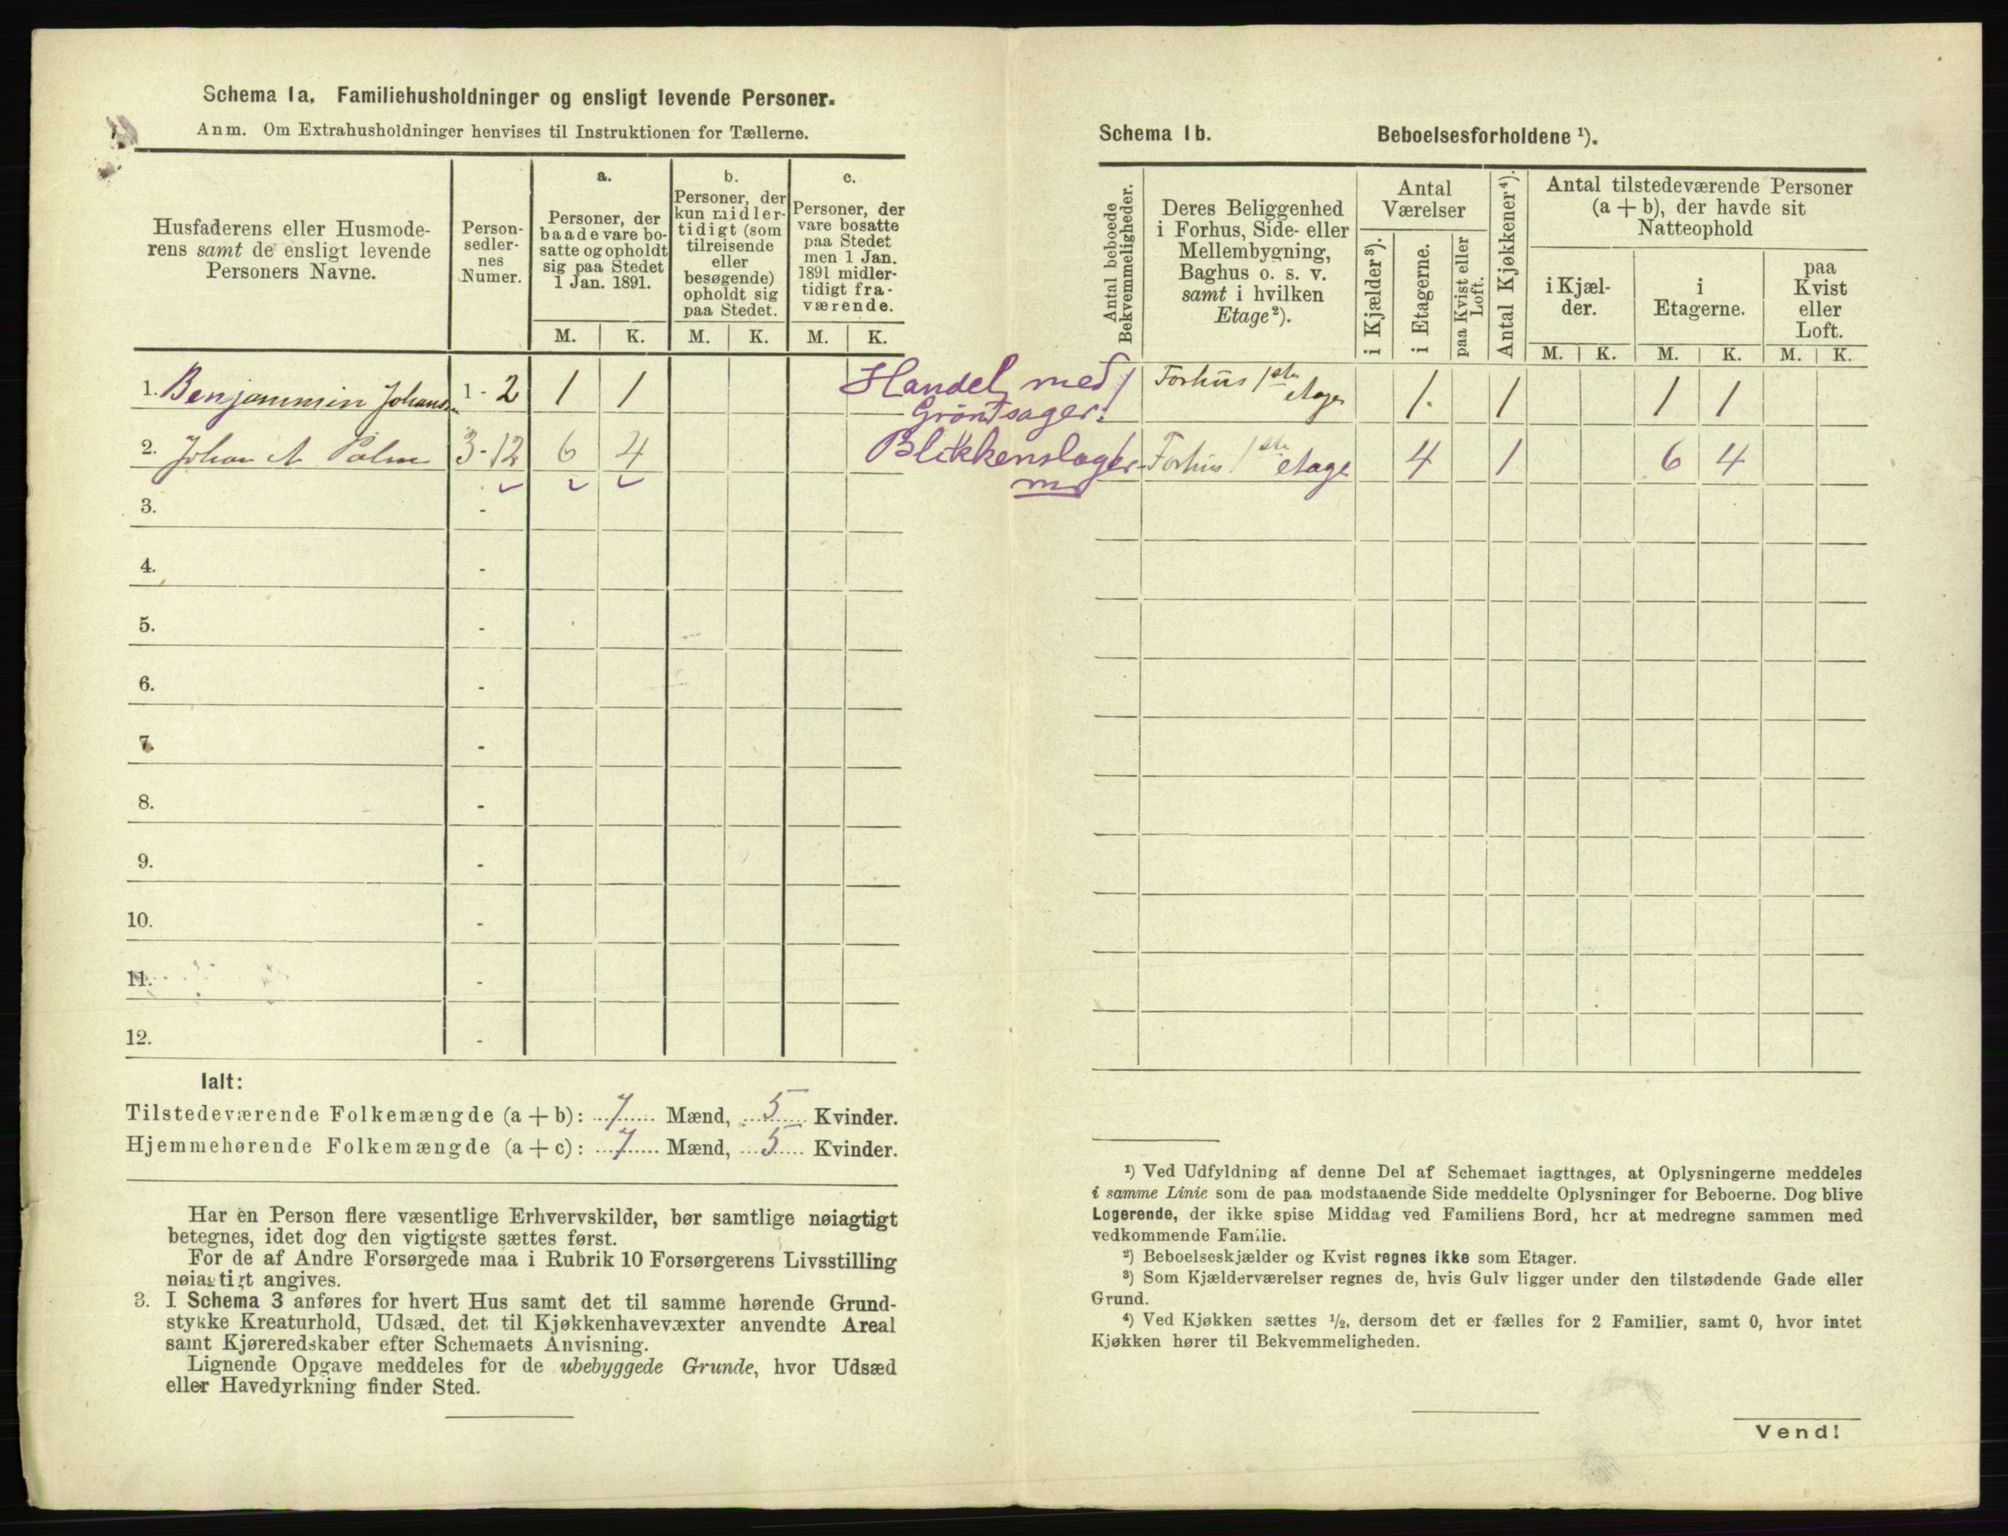 Schema 1a. Familiehusholdninger og ensligt levende Personer.
Anm. Om Extrahusholdninger henvises til Instruktionen for Tællerne.
Husfaderens eller Husmode-
rens samt de ensligt levende
Personers Navne.
Person-
sedler-
nes
Numer.
a.
Personer, der
baade vare bo-
satte og opholdt
sig paa Stedet
1 Jan. 1891.
b.
Personer, der
kun midler-
tidigt (som
tilreisende
eller
besøgende)
opholdt sig
paa Stedet.
c.
Personer, der
vare bosatte
paa Stedet
men 1 Jan.
1891 midler-
tidigt fra-
værende.
M. K. M. K. M. K.
1. Benjammin Johans 1 - 2 1 1
Handel med
Grøntsager.
2. Johan A Palm 3 - 12 6 4
Blikkenslager
3. -
4. -
5. -
6. -
7. -
8. -
9. -
10. -
11. -
12. -
Ialt:
Tilstedeværende Folkemængde (a + b): 7 Mænd, 5 Kvinder.
Hjemmehørende Folkemængde (a + c): 7 Mænd, 5 Kvinder.
Har en Person flere væsentlige Erhvervskilder, bør samtlige nøiagtigt
betegnes, idet dog den vigtigste sættes først.
For de af Andre Forsørgede maa i Rubrik 10 Forsørgerens Livsstilling
nøiagtigt angives.
3. I Schema 3 anføres for hvert Hus samt det til samme hørende Grund-
stykke Kreaturhold, Udsæd, det til Kjøkkenhavevæxter anvendte Areal
samt Kjøreredskaber efter Schemaets Anvisning.
Lignende Opgave meddeles for de ubebyggede Grunde, hvor Udsæd
eller Havedyrkning finder Sted.
Schema 1b. Beboelsesforholdene ¹).
Antal beboede
Bekvemmeligheder.
Deres Beliggenhed
i Forhus, Side- eller
Mellembygning,
Baghus o. s. v.
samt i hvilken
Etage²).
Antal
Værelser
i Kjælder³).
i Etagerne.
paa Kvist eller
Loft.
Antal Kjøkkener⁴).
Antal tilstedeværende Personer
(a + b), der havde sit
Natteophold
i Kjæl-
der.
i
Etagerne.
paa
Kvist
eller
Loft.
M. K. M. K. M. K.
1 Forhus 1ste etage 1. 1 1 1
Forhus 1ste etage 4 1 6 4
¹) Ved Udfyldning af denne Del af Schemaet iagttages, at Oplysningerne meddeles
i samme Linie som de paa modstaaende Side meddelte Oplysninger for Beboerne. Dog blive
Logerende, der ikke spise Middag ved Familiens Bord, her at medregne sammen med
vedkommende Familie.
²) Beboelseskjælder og Kvist regnes ikke som Etager.
³) Som Kjælderværelser regnes de, hvis Gulv ligger under den tilstødende Gade eller
Grund.
⁴) Ved Kjøkken sættes ½, dersom det er fælles for 2 Familier, samt 0, hvor intet
Kjøkken hører til Bekvemmeligheden.
Vend!